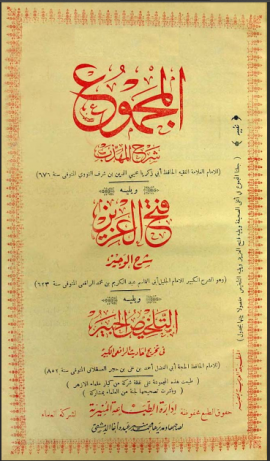 المجموع
شرح المهذب
للامام العلامة الفقيه الحافظ أبي زكريا محيي الدين بن شرف النووي المتوفى سنة ٦٧٦
ويليه
فتح العزيز
شرح الوجيز
وهو الشرح الكبير للامام الجليل أبي القاسم عبد الكريم بن محمد الرافعي المتوفى سنة ٦٢٣
ويليه
التلخيص الحبير
في تخريج الرافعي الكبير
للامام الحافظ الحجة أبي الفضل أحمد بن علي بن حجر العسقلاني المتوفى سنة ٨٥٢
طبعت هذه المجموعة على نفقة شركة من كبار علماء الأزهر
حقوق الطبع محفوظة
إدارة الطباعة المنيرية
لشركة العلماء
تنبيه